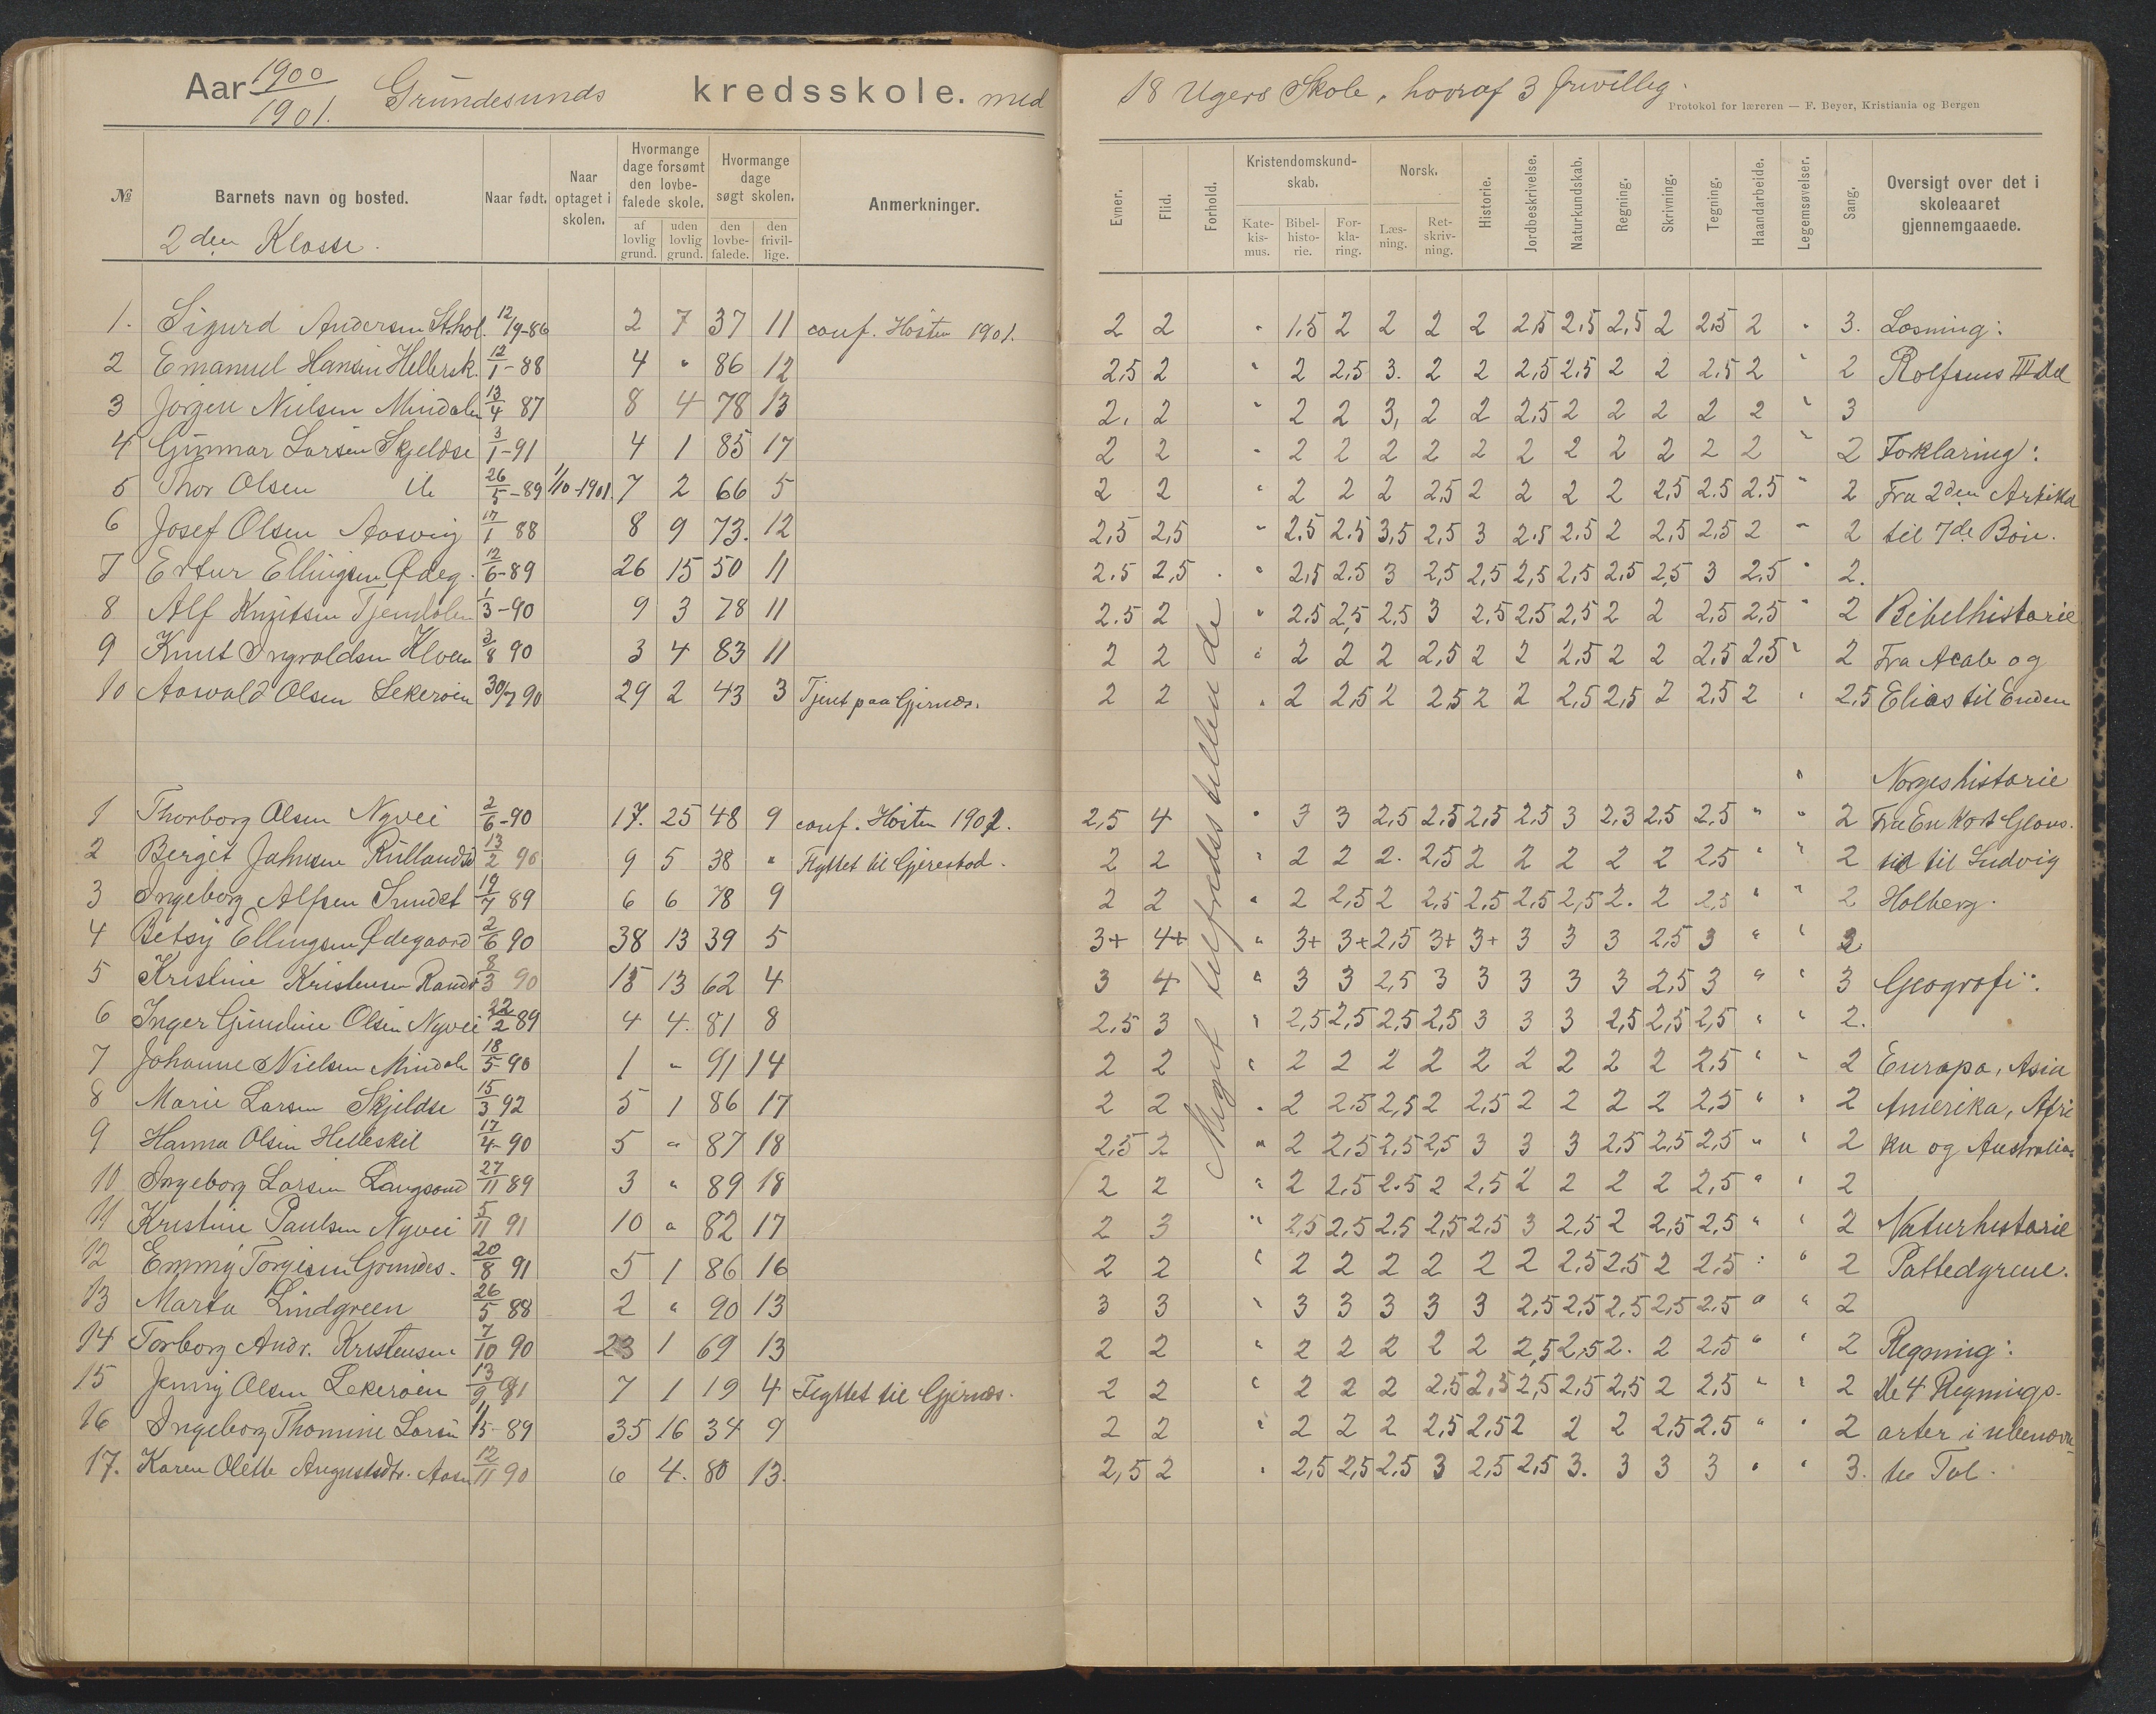 Aar 1900/1901. Grundesunds kredsskole. med 18 Ugers Skole, hvoraf 3 frivillig.
Protokol for læreren — F. Beyer, Kristiania og Bergen
№ Barnets navn og bosted. Naar født. Naar optaget i skolen. Hvormange dage forsømt den lovbefalede skole. af lovlig grund. uden lovlig grund. Hvormange dage søgt skolen. den lovbefalede. den frivillige. Anmerkninger.
Evner. Flid. Forhold. Kristendomskundskab. Katekismus. Bibelhistorie. Forklaring. Norsk. Læsning. Retskrivning. Historie. Jordbeskrivelse. Naturkundskab. Regning. Skrivning. Tegning. Haandarbeide. Legemsøvelser. Sang. Oversigt over det i skoleaaret gjennemgaaede.
2den Klasse.
1. Sigurd Andersen St.hol. 12/9-86 2 7 37 11 conf. Høsten 1901. 2 2 " 1,5 2 2 2 2 2,5 2,5 2,5 2 2,5 2 " 3. Læsning:
2 Emanuel Hansen Hellersk. 12/1-88 4 " 86 12 2,5 2 " 2 2,5 3. 2 2 2,5 2,5 2 2 2,5 2 " 2 Rolfsens III Del
3 Jørgen Nielsen Mindalen 13/4 87 8 4 78 13 2. 2 " 2 2 3, 2 2 2,5 2 2 2 2 2 " 3
4 Gunnar Larsen Skjeldsø 3/1-91 4 1 85 17 2 2 " 2 2 2 2 2 2 2 2 2 2 2 " 2 Forklaring:
5 Thor Olsen 26/5-89 1/10-1901. 7 2 66 5 2 2 " 2 2 2 2,5 2 2 2 2 2,5 2.5 2.5 " 2 Fra 2den Artikel
6 Josef Olsen Aasvig 17/1 88 8 9 73. 12 2,5 2,5 " 2.5 2.5 3,5 2,5 3 2.5 2.5 2 2,5 2,5 2 " 2 til 7de Bøn.
7 Ertur Ellingsen Ødeg. 12/6-89 26 15 50 11 2.5 2,5 " 2,5 2.5 3 2,5 2,5 2,5 2,5 2,5 2,5 3 2,5 " 2.
8 Alf Knutsen Tjendalen 1/3-90 9 3 78 11 2.5 2 " 2.5 2,5 2,5 3 2,5 2,5 2,5 2 2 2,5 2,5 " 2 Bibelhistorie
9 Knut Ingvaldsen Kloen 3/8 90 3 4 83 11 2 2 " 2 2 2 2,5 2 2 2,5 2 2 2,5 2,5 " 2 Fra Acab og
10 Aasvald Olsen Lekerøen 30/7 90 29 2 43 3 Tjent paa Gjernæs. 2 2 " 2 2,5 2 2,5 2 2 2,5 2,5 2 2,5 2 " 2,5 Elias til Enden
Meget tilfredsstillende
" Norgeshistorie
1 Thorborg Olsen Nyvei 2/6-90 17. 25 48 9 conf. Høsten 1902. 2,5 4 " 3 3 2,5 2,5 2,5 2,5 3 2,3 2,5 2,5 " " 2 Fra En Kort Glans.
2 Bergit Jahnsen 13/2 90 9 5 38 " Flyttet til Gjerestad. 2 2 " 2 2 2. 2,5 2 2 2 2 2 2,5 " " 2 tid til Ludvig
3 Ingeborg Alfsen Sundet 19/7 89 6 6 78 9 2 2 " 2 2,5 2 2,5 2,5 2,5 2,5 2. 2 2,5 " " 2 Holberg.
4 Betsy Ellingsen Ødegaard 2/6 90 38 13 39 5 3+ 4+ " 3+ 3+ 2,5 3+ 3+ 3 3 3 2,5 3 " " 2
5 Kristine Kristensen 8/3 90 18 13 62 4 3 4 " 3 3 2,5 3 3 3 3 3 2,5 3 " " 3 Geografi:
6 Inger Gundine Olsen Nyvei 22/2 89 4 4. 81 8 2.5 3 " 2,5 2,5 2,5 2,5 3 3 3 2,5 2,5 2,5 " " 2.
7 Johanne Nielsen Mindal 18/5-90 1 " 91 14 2 2 " 2 2 2 2 2 2 2 2 2 2,5 " " 2 Europa, Asia
8 Marie Larsen Skjeldsø 15/3 92 5 1 86 17 2 2 " 2 2.5 2,5 2 2,5 2 2 2 2 2,5 " " 2 Amerika, Afri
9 Hanna Olsen Helleskil 17/4-90 5 " 87 18 2,5 2 " 2 2,5 2,5 2,5 3 3 3 2,5 2,5 2,5 " " 2 ka og Australia.
10 Ingeborg Larsen Langsand 27/11 89 3 " 89 18 2 2 " 2 2.5 2.5 2 2,5 2 2 2 2 2,5 " " 2
11 Kristine Paulsen Nyvei 5/11 91 10 " 82 17 2 3 " 2,5 2,5 2.5 2,5 2,5 3 2,5 2 2,5 2,5 " " 2 Naturhistorie
12 Emmy Torgisen Grundes. 20/8 91 5 1 86 16 2 2 " 2 2 2 2 2 2 2.5 2.5 2 2,5 " " 2 Pattedyrene.
13 Marta Lindgreen 26/5 88 2 " 90 13 3 3 " 3 3 3 3 3 2,5 2,5 2,5 2,5 2,5 " " 2
14 Torborg Andr. Kristensen 7/10 90 23 1 69 13 2 2 " 2 2 2 2 2 2,5 2,5 2. 2 2,5 " " 2 Regning:
15 Jenny Olsen Lekerøen 13/9 91 7 1 19 4 Flyttet til Gjernæs. 2 2 " 2 2 2 2,5 2,5 2,5 2,5 2,5 2 2,5 " " 2 De 4 Regnings-
16 Ingeborg Thomine Larsen 1/5-89 35 16 34 9 2 2 " 2 2 2 2,5 2,5 2 2 2 2,5 2.5 " " 2 arter i ubenævn
17. Karen Olette Augustsdtr. Aasen 12/11 90 6 4. 80 13. 2,5 2 " 2,5 2,5 2,5 3 2,5 2,5 3. 3 3 3 " " 3. te Tal.